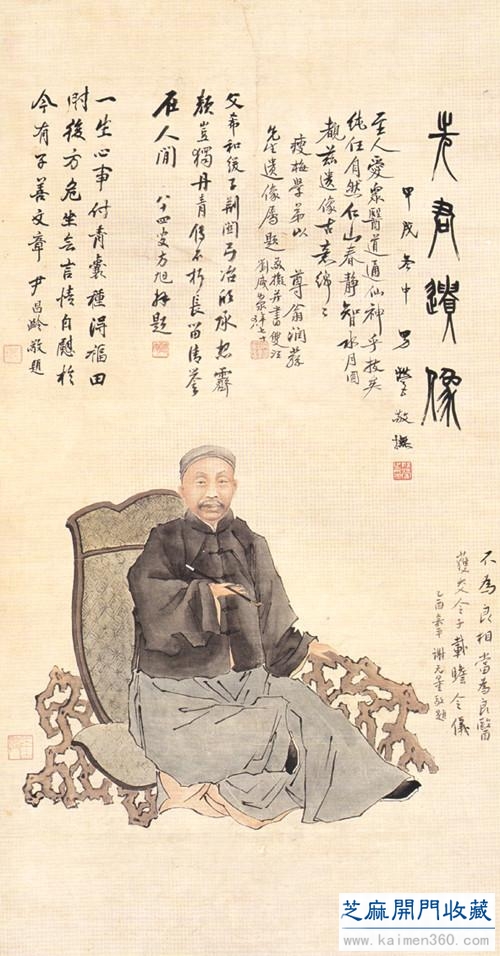 先君遺像
甲戌冬中 男 敬撫
至人愛眾醫道通仙神乎技矣
純任自然仁山春靜智水月圓
覩茲遺像古意綿綿
瘦梅學弟以 尊翁潤蓀
先生遺像屬題 敬撰并書 雙江
劉咸滎年七十
父希和緩子荆關弓冶能承忽霽
顏豈獨丹青傳不朽長留清譽
在人間 八十四叟方旭拜題
一生心事付青囊種得福田
肘後方危坐無言情自慰於
今有子善文章 尹昌齡敬題
不為良相當為良醫
獲交令子載瞻令儀
乙酉 謝无量敬題
芝麻開門收藏
www.kaimen360.com